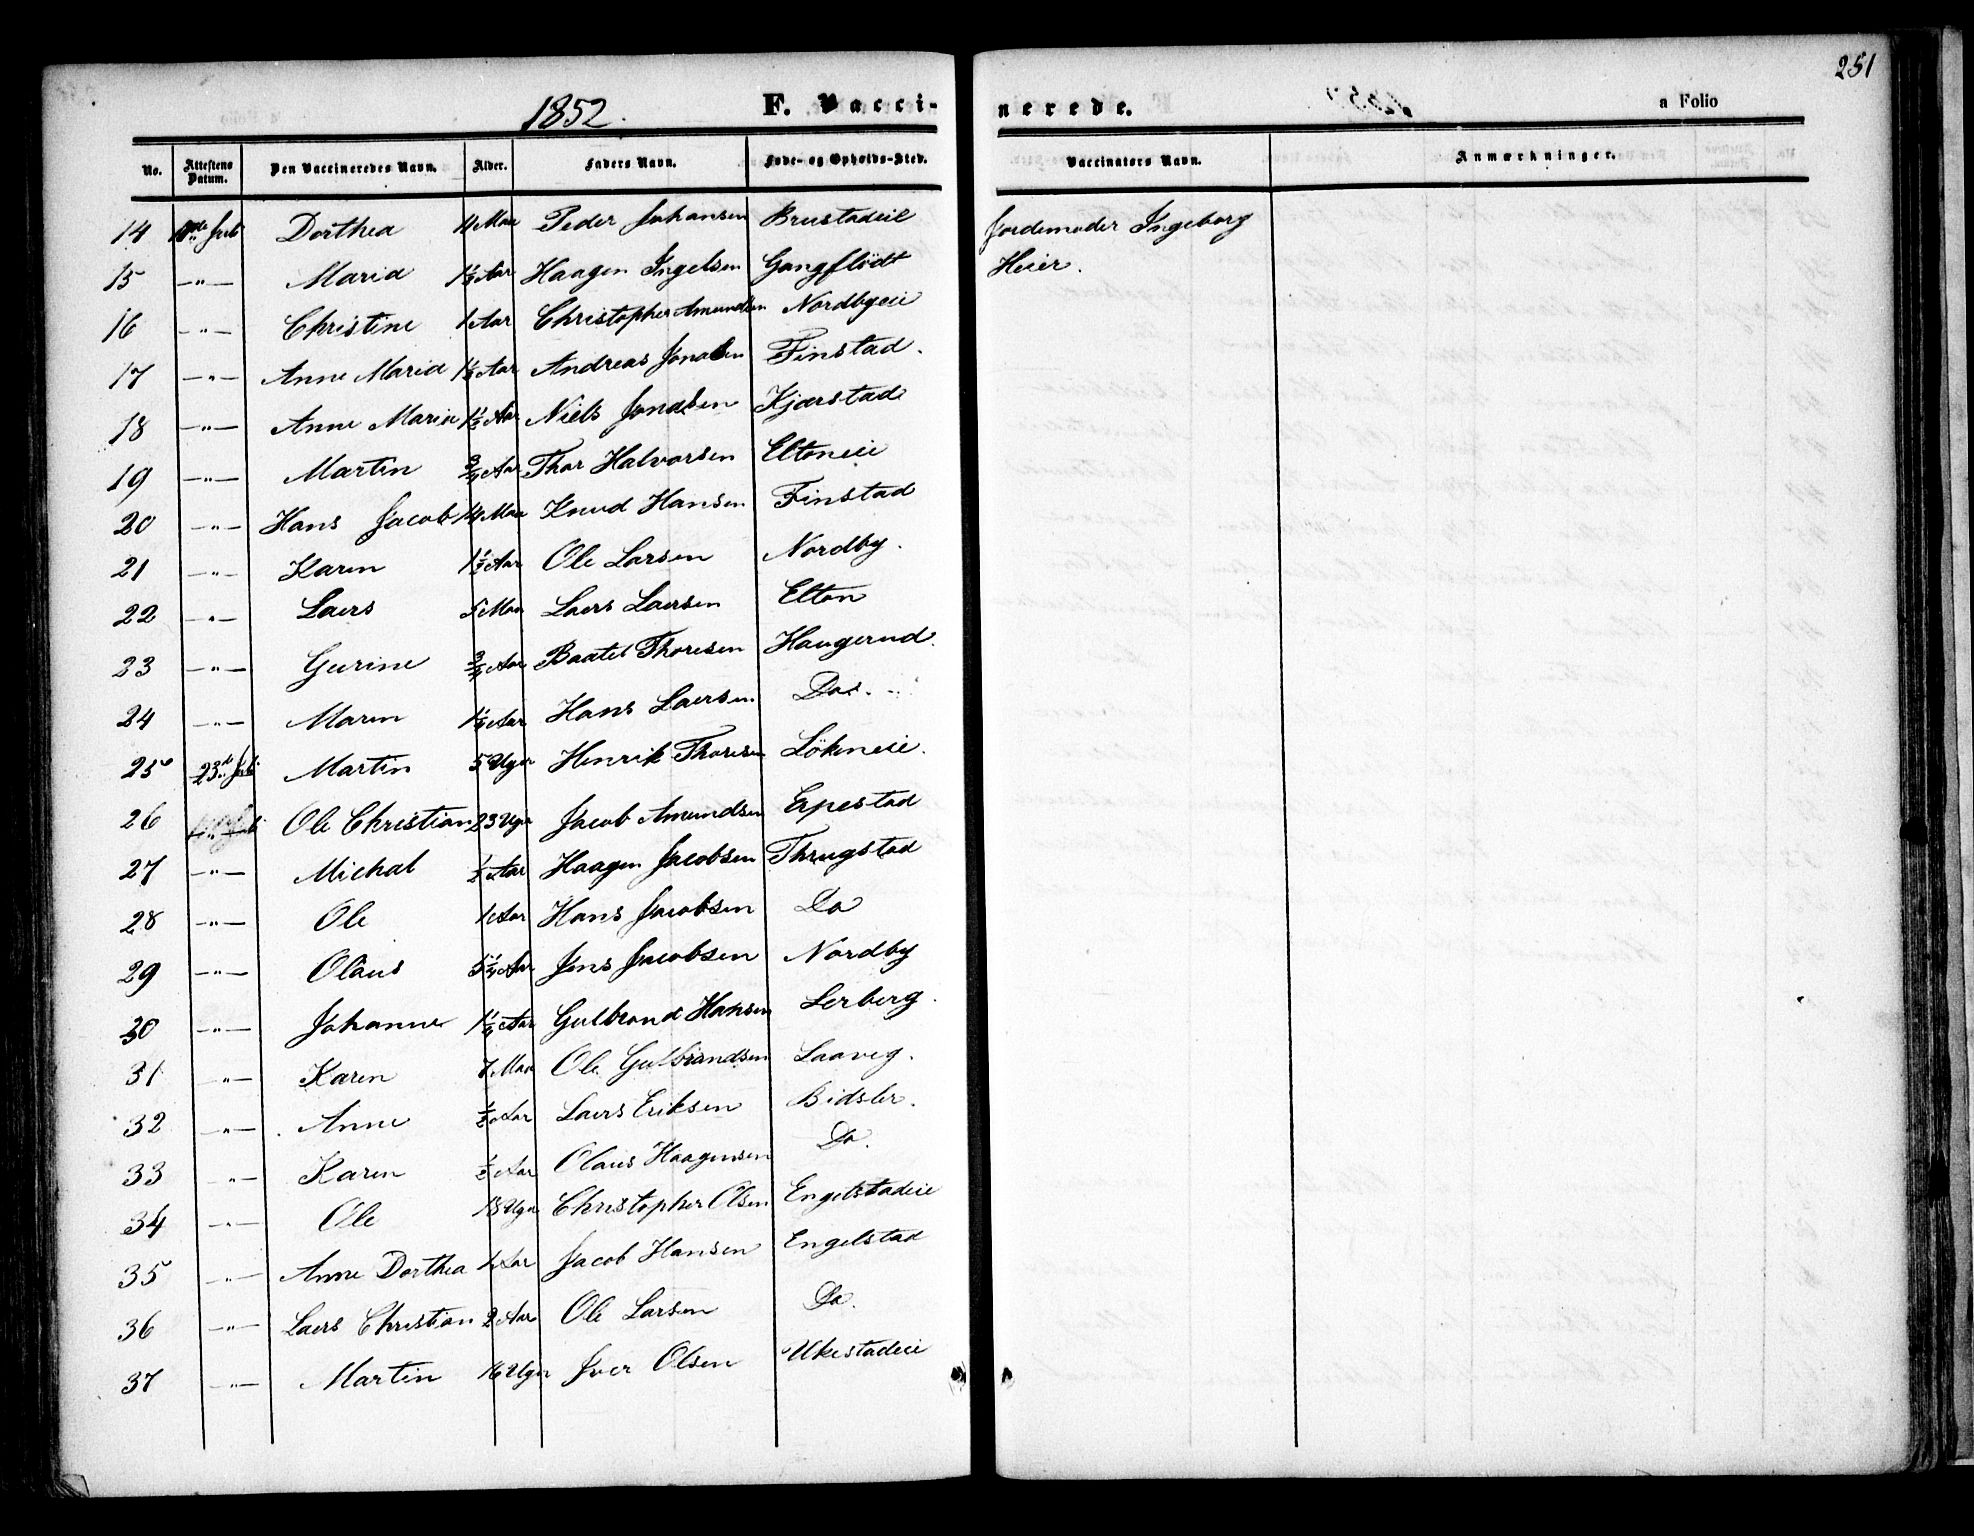 251
1852. F. Vaccinerede. a Folio
No. Attestens Datum. Den Vaccineredes Navn. Alder. Faders Navn. Føde- og Opholds-Sted. Vaccinators Navn. Anmærkninger.
14 Juli Dorthea 4 Maa Peder Johansen Brustadeie Jordemoder Ingeborg
15 —"— Maria Aar Haagen Ingelsen Gangflödt Heier.
16 —"— Christine 1 Aar Christopher Amundsen Nordbyeie
17 —"— Anne Maria Aar Andreas Jonassen Finstad.
18 —"— Anne Maria 1½ Aar Niels Jonassen Kjærstad
19 —"— Martin ¾ Aar Thor Halvorsen Eltoneie
20 —"— Hans Jacob 14 Maa Knud Hansen Finstad
21 —"— Karen 1½ Aar Ole Larsen Nordby.
22 —"— Laers 5 Maa Laers Laersen Elton
23 —"— Gurine ¾ Aar Baatel Thoresen Haugerud.
24 —"— Maren Aar Hans Laersen Do.
25 23de Juli Martin 5 Uger Henrik Thoresen Lökeneie.
26 —"— Ole Christian 23 Uger Jacob Amundsen Erpestad
27 —"— Michal ½ Aar Haagen Jacobsen Thrugstad
28 —"— Ole 1 Aar Hans Jacobsen Do
29 —"— Olaus Aar Jens Jacobsen Nordby
30 —"— Johanne Aar Gulbrand Hansen Lerberg.
31 —"— Karen 7 Maa Ole Gulbrandsen Laaveg.
32 —"— Anne ½ Aar Laers Eriksen Bidsler.
33 —"— Karen ½ Aar Olaus Haagensen Do.
34 —"— Ole 18 Uger Christopher Olsen Engelstadeie
35 —"— Anne Dorthea 1 Aar Jacob Hansen Engelstad
36 —"— Laers Christian 2 Aar Ole Larsen Do.
37 —"— Martin 16 Uger Iver Olsen Ukestadeie